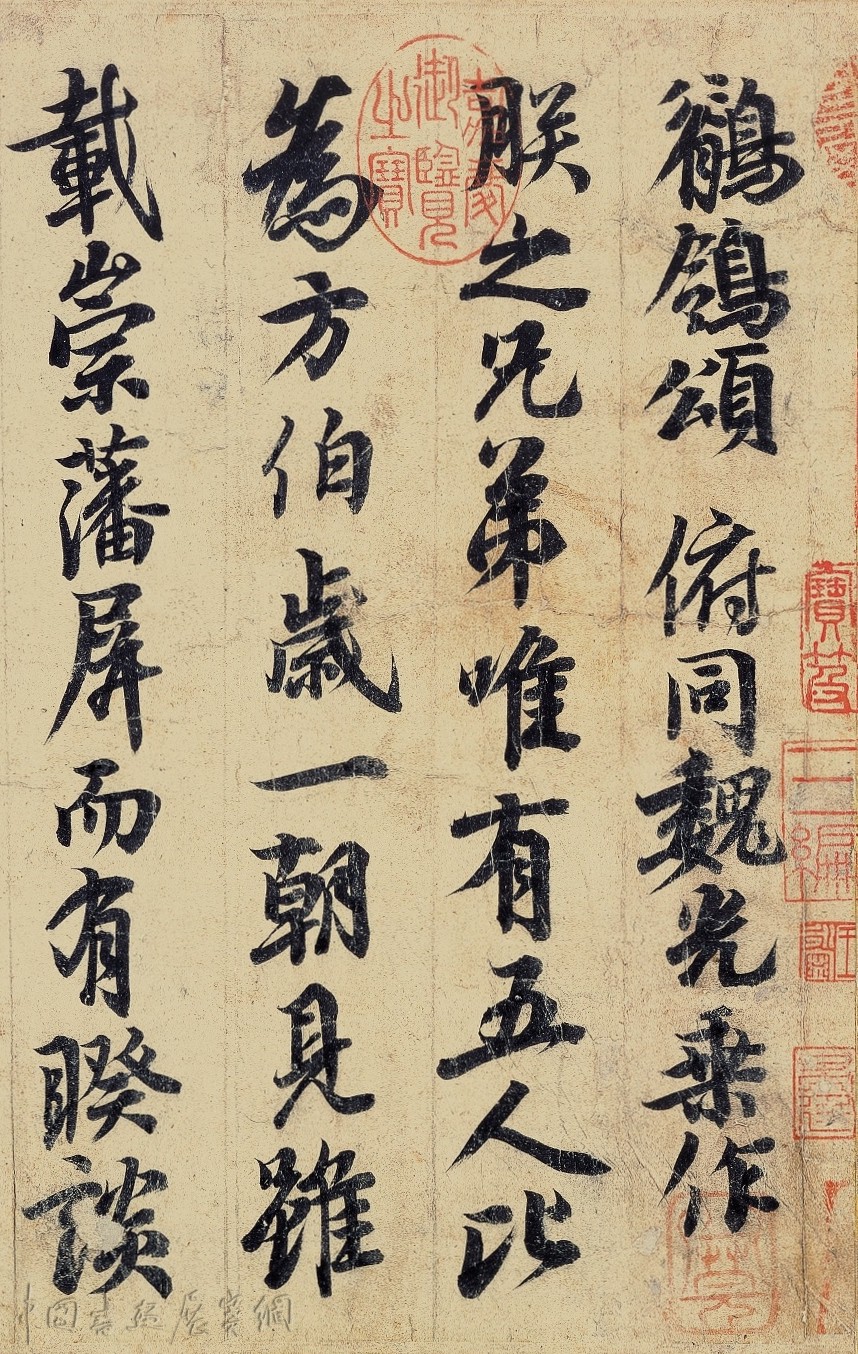 鶺鴒頌 俯同魏光乘作
朕之兄弟唯有五人比
為方伯歲一朝見雖
載崇藩屏而有睽談
嘉慶御覽之寶
寶笈
三編
中國書法展賽網